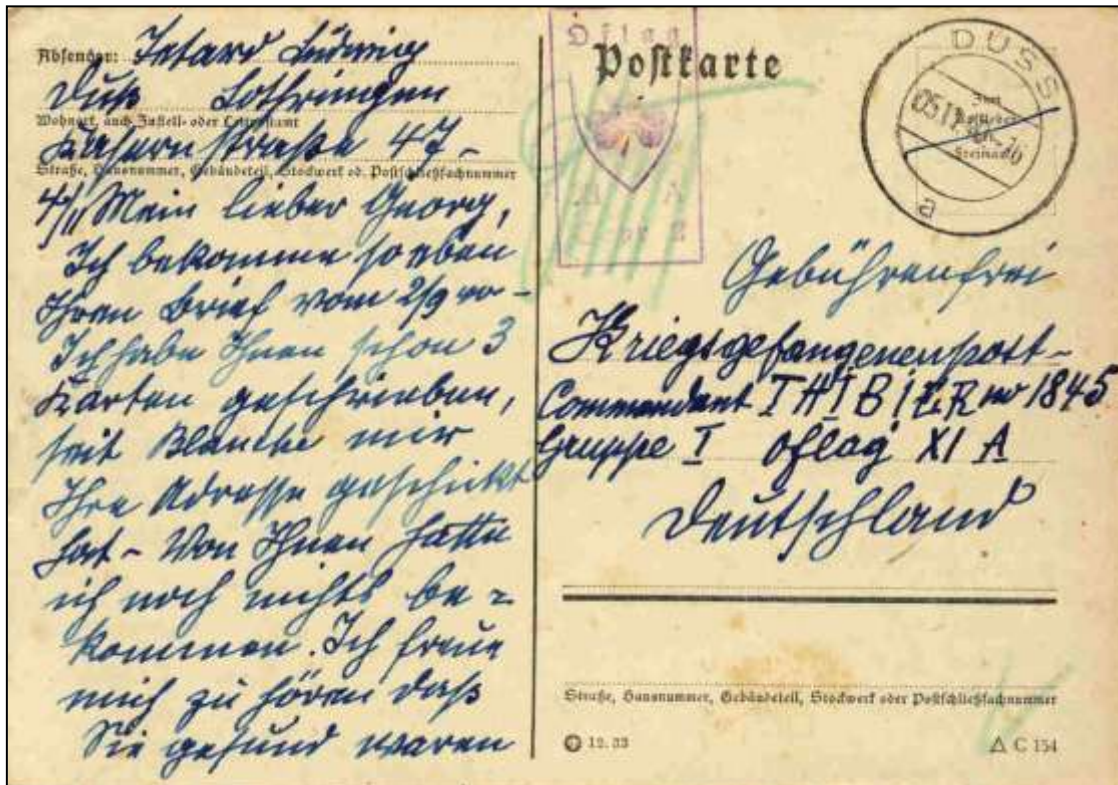 Absender: Jetard Ludwig
Duß Lothringen
Wohnort, auch Zustell- oder Leitpostamt
straße 47-
Straße, Hausnummer, Gebäudeteil, Stockwerk od. Postschließfachnummer
4/11 Mein lieber Georg,
Ich bekomme soeben
Ihren Brief vom 2/9 vo-
Ich habe Ihnen schon 3
Karten geschrieben,
seit Blanche mir
Ihre Adresse geschickt
hat - Von Ihnen hatte
ich noch nichts be-
kommen. Ich freue
mich zu hören daß
Sie gesund waren
Oflag
XI A
Postkarte
DUSS
a
Gebührenfrei
Kriegsgefangenenpost-
Commandant THIBIER no 1845
Gruppe I oflag XI A
Deutschland
Straße, Hausnummer, Gebäudeteil, Stockwerk oder Postschließfachnummer
12. 33
C 154